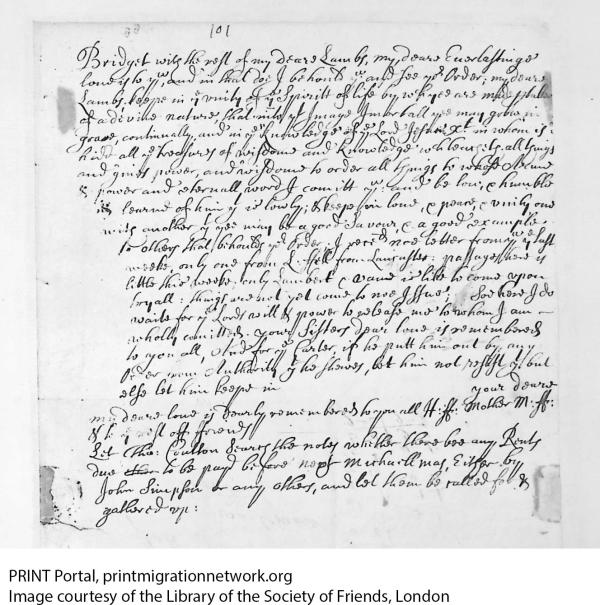 101
Bridget with the rest of my deare Lambs, my deare Everlastinge
love is to you, and in that doe I behould yu and see yr Order; my deare
Lambs keepe in ye unity of ye Spiritt of life by wch yee are made
of a divine nature, that into ye Image Imortall yee may grow in
Grace, continually, and in ye knowledge of ye Lord Jesus Xt in whom is
hidd all ye treasures of wisdome and knowledge all things
and gives power, and wisdome to order all things to whose
& power and eternall word I comitt yu and be low, & humble
learne of him yt is lowly; & keepe in love, & peace, & unity one
with another yt yee may be a good savour, & a good example
to others that behould yr Order; I reced noe letter from yu ye last
weeke, only one from L: Fell from Lancaster: passages here is
little this weeke, only Lambert & Vane is like to come upon
tryall: things are not yet come to noe Issue, Soe here I do
waite for ye Lords will & power to release me to whom I am
wholly comitted: your Sisters dear love is remembered
to you all, And for ye Carter, if he putt him out by any
Order from Authority yt he shewes, let him not resist it, but
else let him keepe in your deare
my deare love is dearly remembered to you all H: ff: Mother M: ff:
& to ye rest off friends
Let Tho: Coulton search the notes whether there bee any Rents
due to be payd before next Michaell mas, Either by
John Simpson or any others, and let them be called for &
gathered up:
PRINT Portal, printmigrationnetwork.org
Image courtesy of the Library of the Society of Friends, London